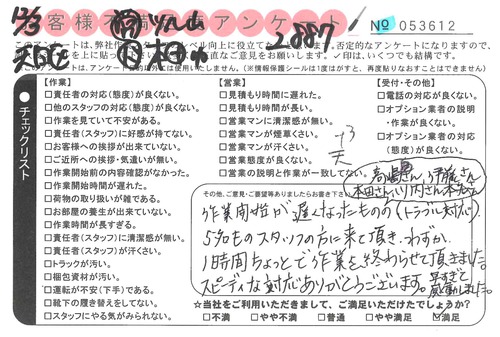 12/3
お客様不満足度アンケート
2887
№ 053612
このアンケートは、弊社作
否定的なアンケートになりますので、
✓印は、いくつでも結構です。
このアンケートは、アンケート以外に使用いたしません。(※情報保護シールは1度がすと、再度貼りなおすことはできません)
チェックリスト
【作業】
□責任者の対応(態度)が良くない。
□他のスタッフの対応(態度)が良くない。
□作業を見ていて不安がある。
□責任者(スタッフ)に好感が持てない。
□お客様への挨拶が出来ていない。
□ご近所への挨拶・気遣いが無い。
□作業開始前の内容確認がなかった。
□作業開始時間が遅れた。
□荷物の取り扱いが雑である。
□お部屋の養生が出来ていない。
□作業時間が長すぎる。
□責任者(スタッフ)に清潔感が無い。
□責任者(スタッフ)が汗くさい。
□トラックが汚い。
□梱包資材が汚い。
□運転が不安(下手)である。
□靴下の履き替えをしてない。
□スタッフにやる気がみられない。
【営業】
□見積もり時間に遅れた。
□見積もり時間が長い。
□営業マンに清潔感が無い。
□営業マンが煙草くさい。
□営業マンが汗くさい。
□営業態度が良くない。
□営業の説明と作業が一致してない。
【受付・その他】
□電話の対応が良くない。
□オプション業者の説明
・作業が良くない。
□オプション業者の対応
(態度)が良くない。
その他、ご意見・ご要望等ありましたらお書き下さい。
作業開始が遅くなったものの(トラブル対応)
5名ものスタッフの方に来て頂き、わずか
1時間ちょっとで作業を終わらせて頂きました。
スピーディな対応ありがとうございます。
☆当社をご利用いただきまして、ご満足いただけたでしょうか?
□不満 □やや不満 □普通 □やや満足 ☑満足